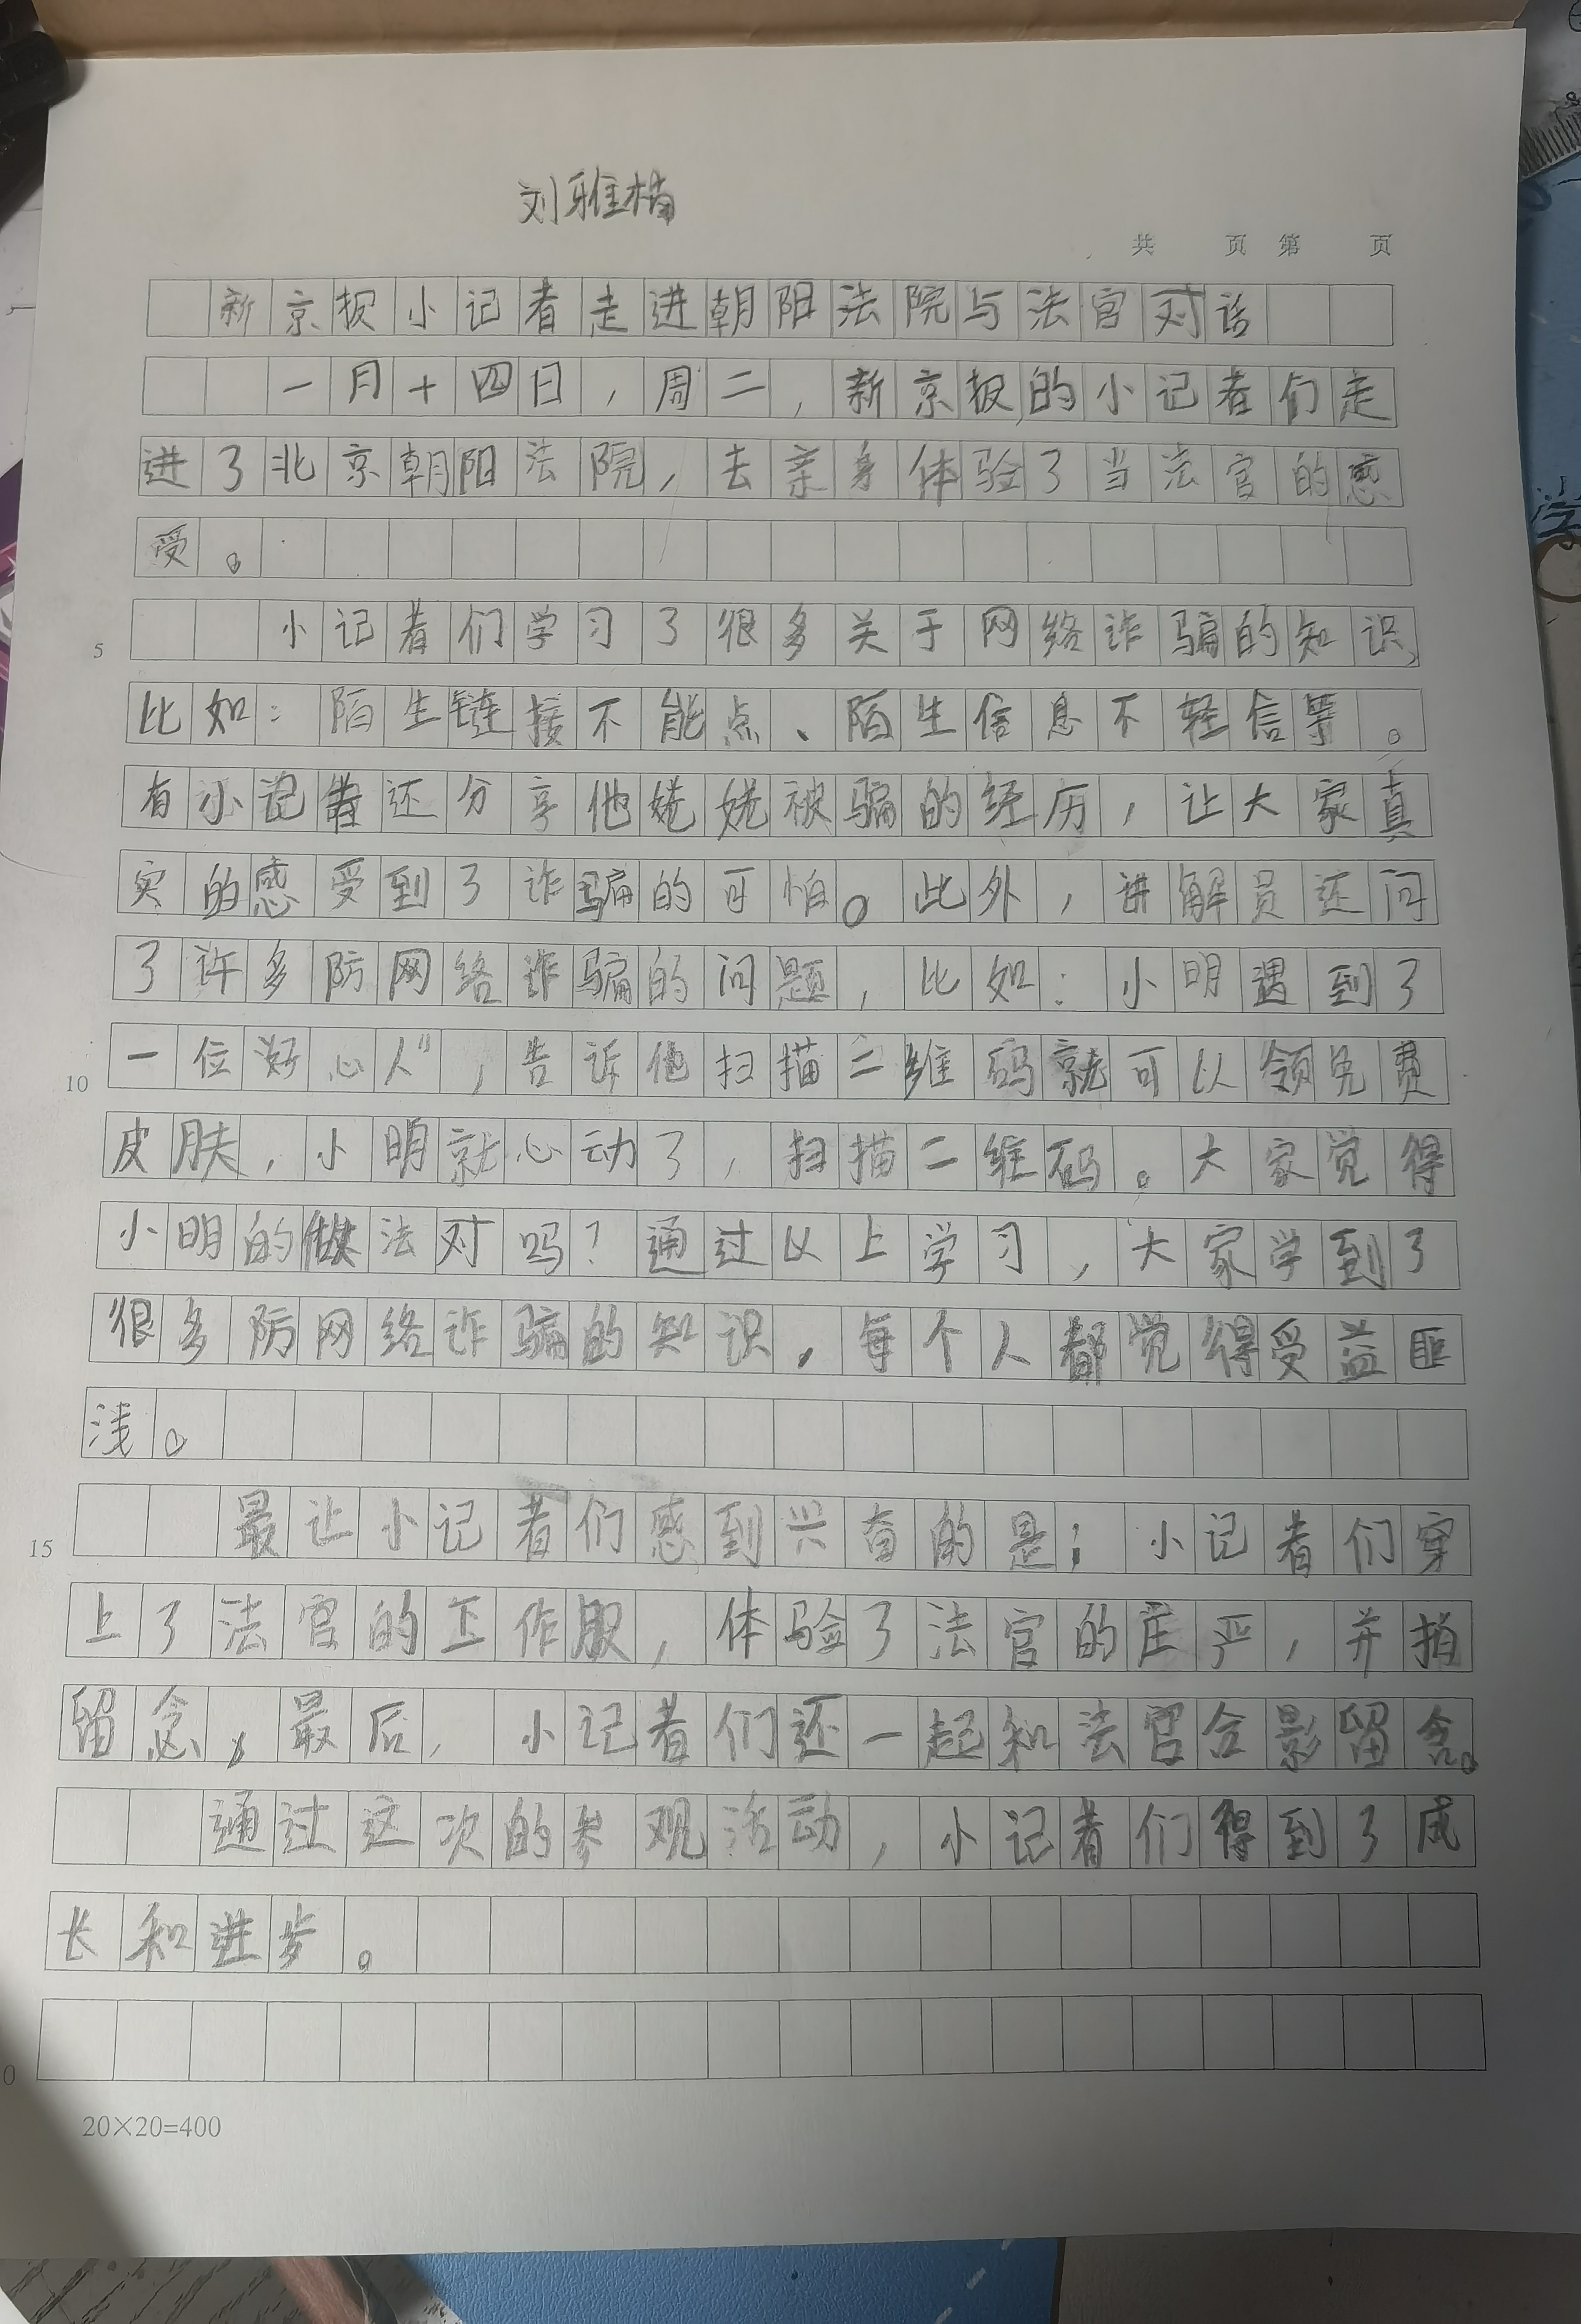 刘雅楠
共 页 第 页
新京报小记者走进朝阳法院与法官对话
一月十四日，周二，新京报的小记者们走
进了北京朝阳法院，去亲身体验了当法官的感
受。
5 小记者们学习了很多关于网络诈骗的知识，
比如：陌生链接不能点、陌生信息不轻信等。
有小记者还分享他姥姥被骗的经历，让大家真
实的感受到了诈骗的可怕。此外，讲解员还问
了许多防网络诈骗的问题，比如：小明遇到了
10 一位“好心人”，告诉他扫描二维码就可以领免费
皮肤，小明就心动了，扫描二维码。大家觉得
小明的做法对吗？通过以上学习，大家学到了
很多防网络诈骗的知识，每个人都觉得受益匪
浅。
15 最让小记者们感到兴奋的是；小记者们穿
上了法官的工作服，体验了法官的庄严，并拍
留念，最后，小记者们还一起和法官合影留念。
通过这次的参观活动，小记者们得到了成
长和进步。
0
20×20=400